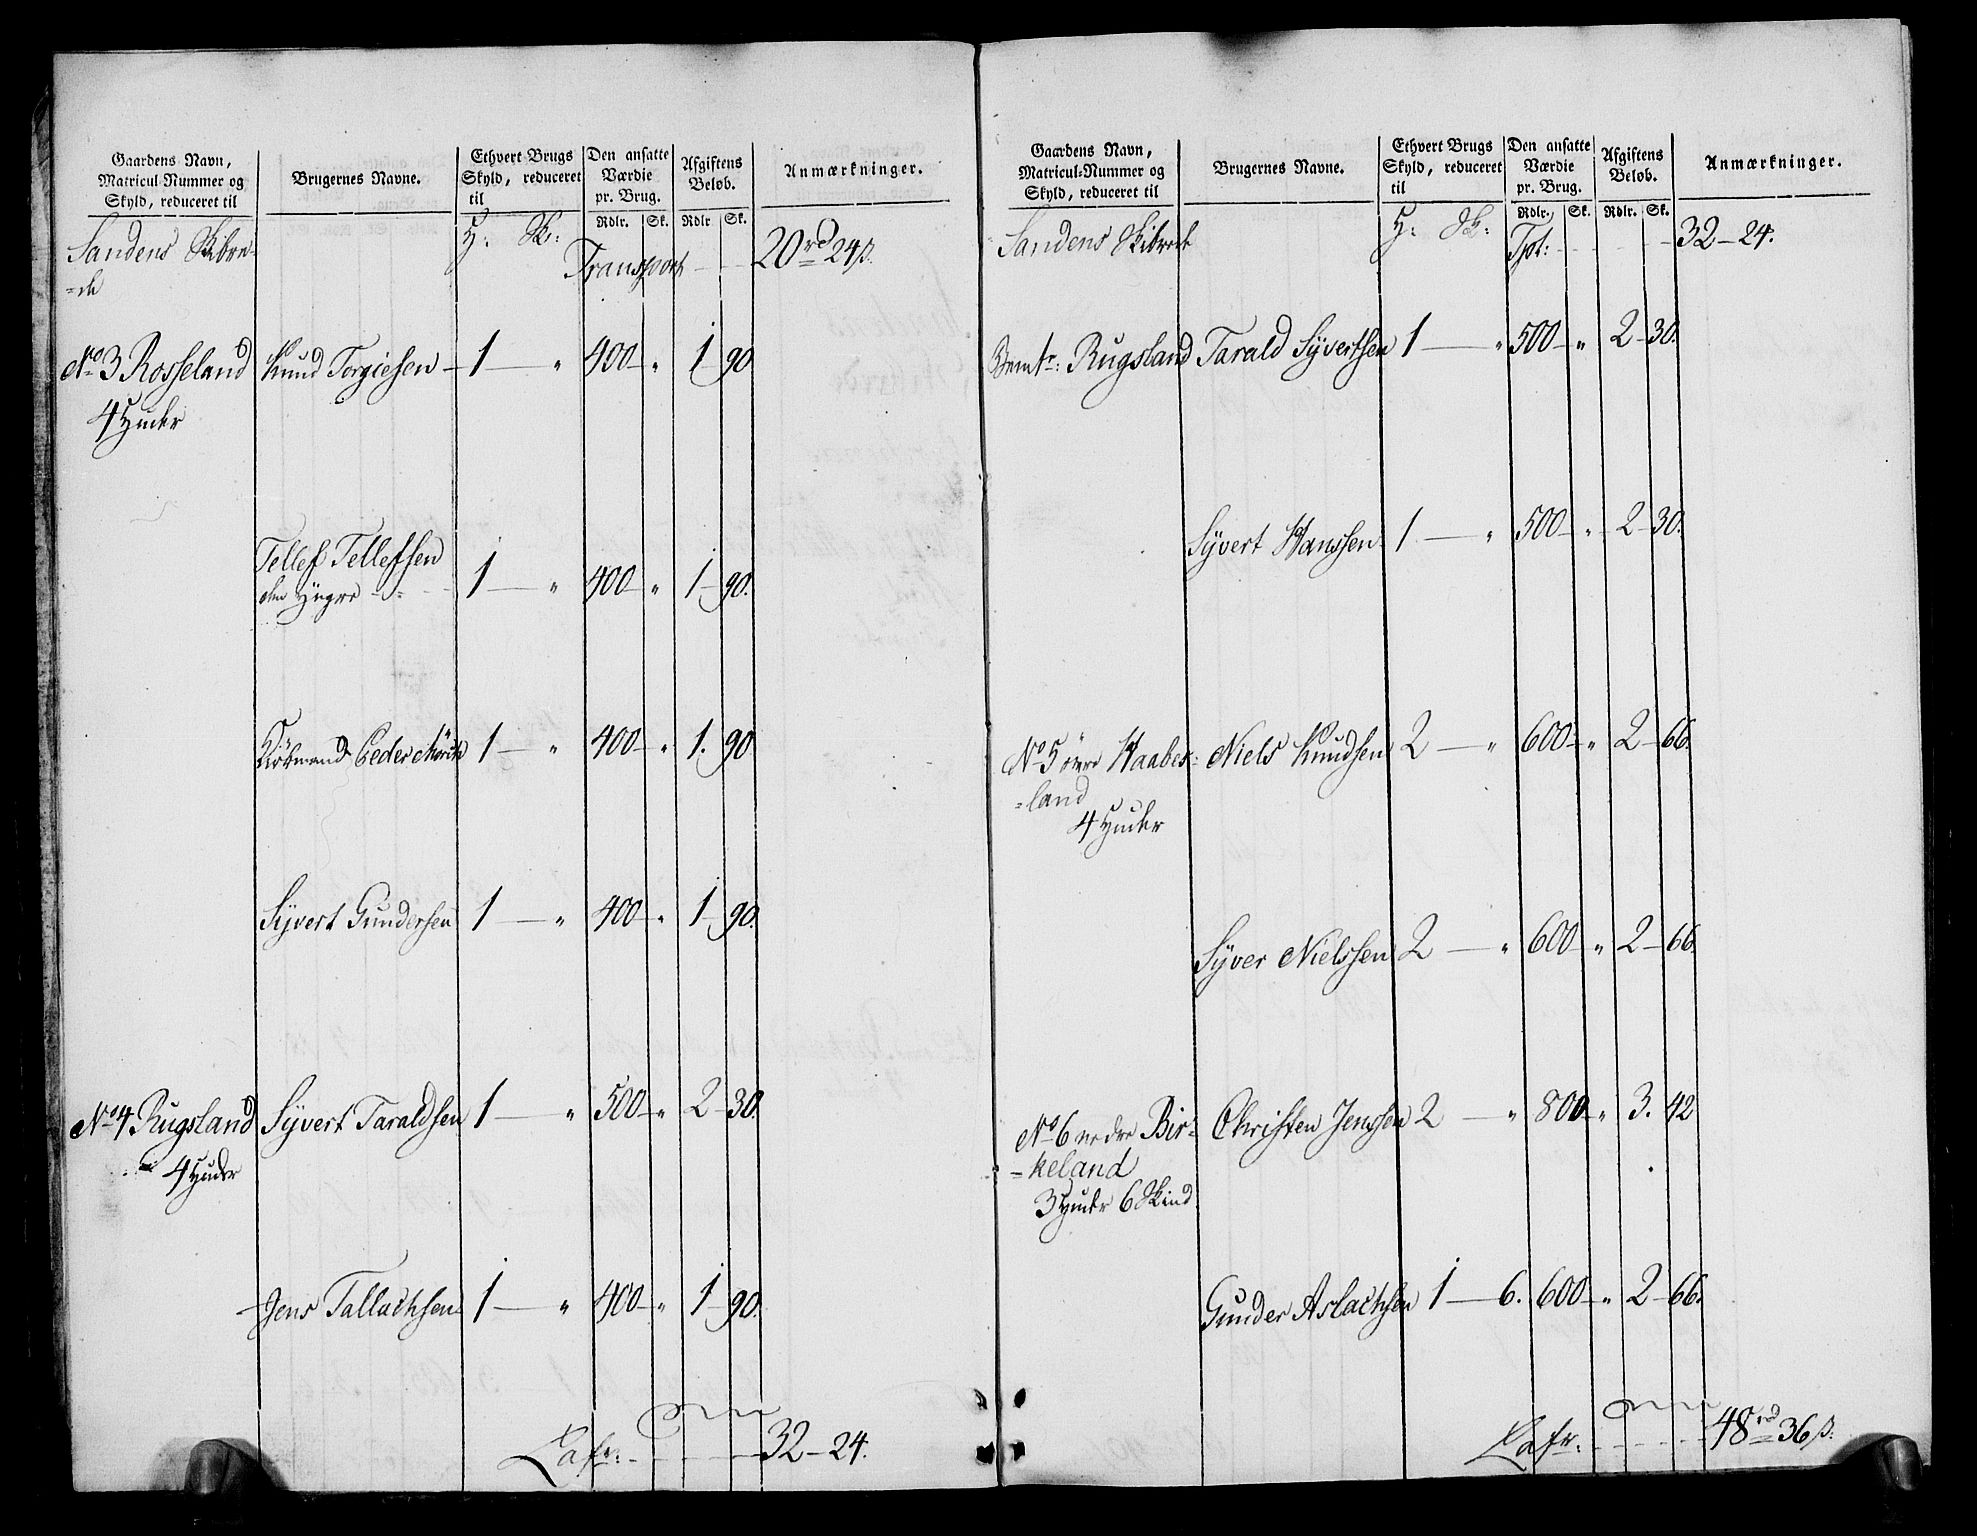 Gaardens Navn,
Matricul-Nummer og
Skyld, reduceret til
Brugernes Navne.
Ethvert Brugs
Skyld, reduceret
til
Den ansatte
Værdie
pr. Brug.
Afgiftens
Beløb.
Anmærkninger.
Rdlr. Sk. Rdlr Sk.
Sandens Skibre-
=de
H: Sk:
Transport - - 20 rd 24 ß.
No 3 Rosseland Knud Tergiesen 1 — " 400 — " 1 — 90
4 Huder
Tellef Tellefsen
den Yngre - - - 1 — " 400 — " 1 — 90.
Kiöbmand Peder Mörch 1 — " 400 — " 1. 90
Syvert Gundersen 1 — " 400 — " 1 — 90.
No 4 Rugsland Syvert Taraldsen 1 — " 500 — " 2 — 30.
4 Huder
Jens Tallachsen 1 — " 400 — " 1 — 90.
Lafr: - - - - 32 — 24.
Gaardens Navn,
Matricul-Nummer og
Skyld, reduceret til
Brugernes Navne.
Ethvert Brugs
Skyld, reduceret
til
Den ansatte
Værdie
pr. Brug.
Afgiftens
Beløb.
Anmærkninger.
Rdlr. Sk. Rdlr. Sk.
Sandens Skibrede
H: Sk:
Tpt: - - - - 32 — 24.
Bemte: Rugsland Tarald Syvertsen 1 — " 500 — " 2 — 30.
Syvert Hanssen 1 — " 500 — " 2 — 30.
No 5 övre Haabes= Niels Knudsen 2 — " 600 — " 2 — 66.
=land
4 Huder
Syver Nielssen 2 — " 600 — " 2 — 66.
No 6 nedre Bir= Christen Jenssen 2 — " 800 — " 3. 42
=keland
3 Huder 6 Skind
Gunder Aslachsen 1 — 6. 600 — " 2 — 66.
Lafr: - - - - 48 rd 36 ß.